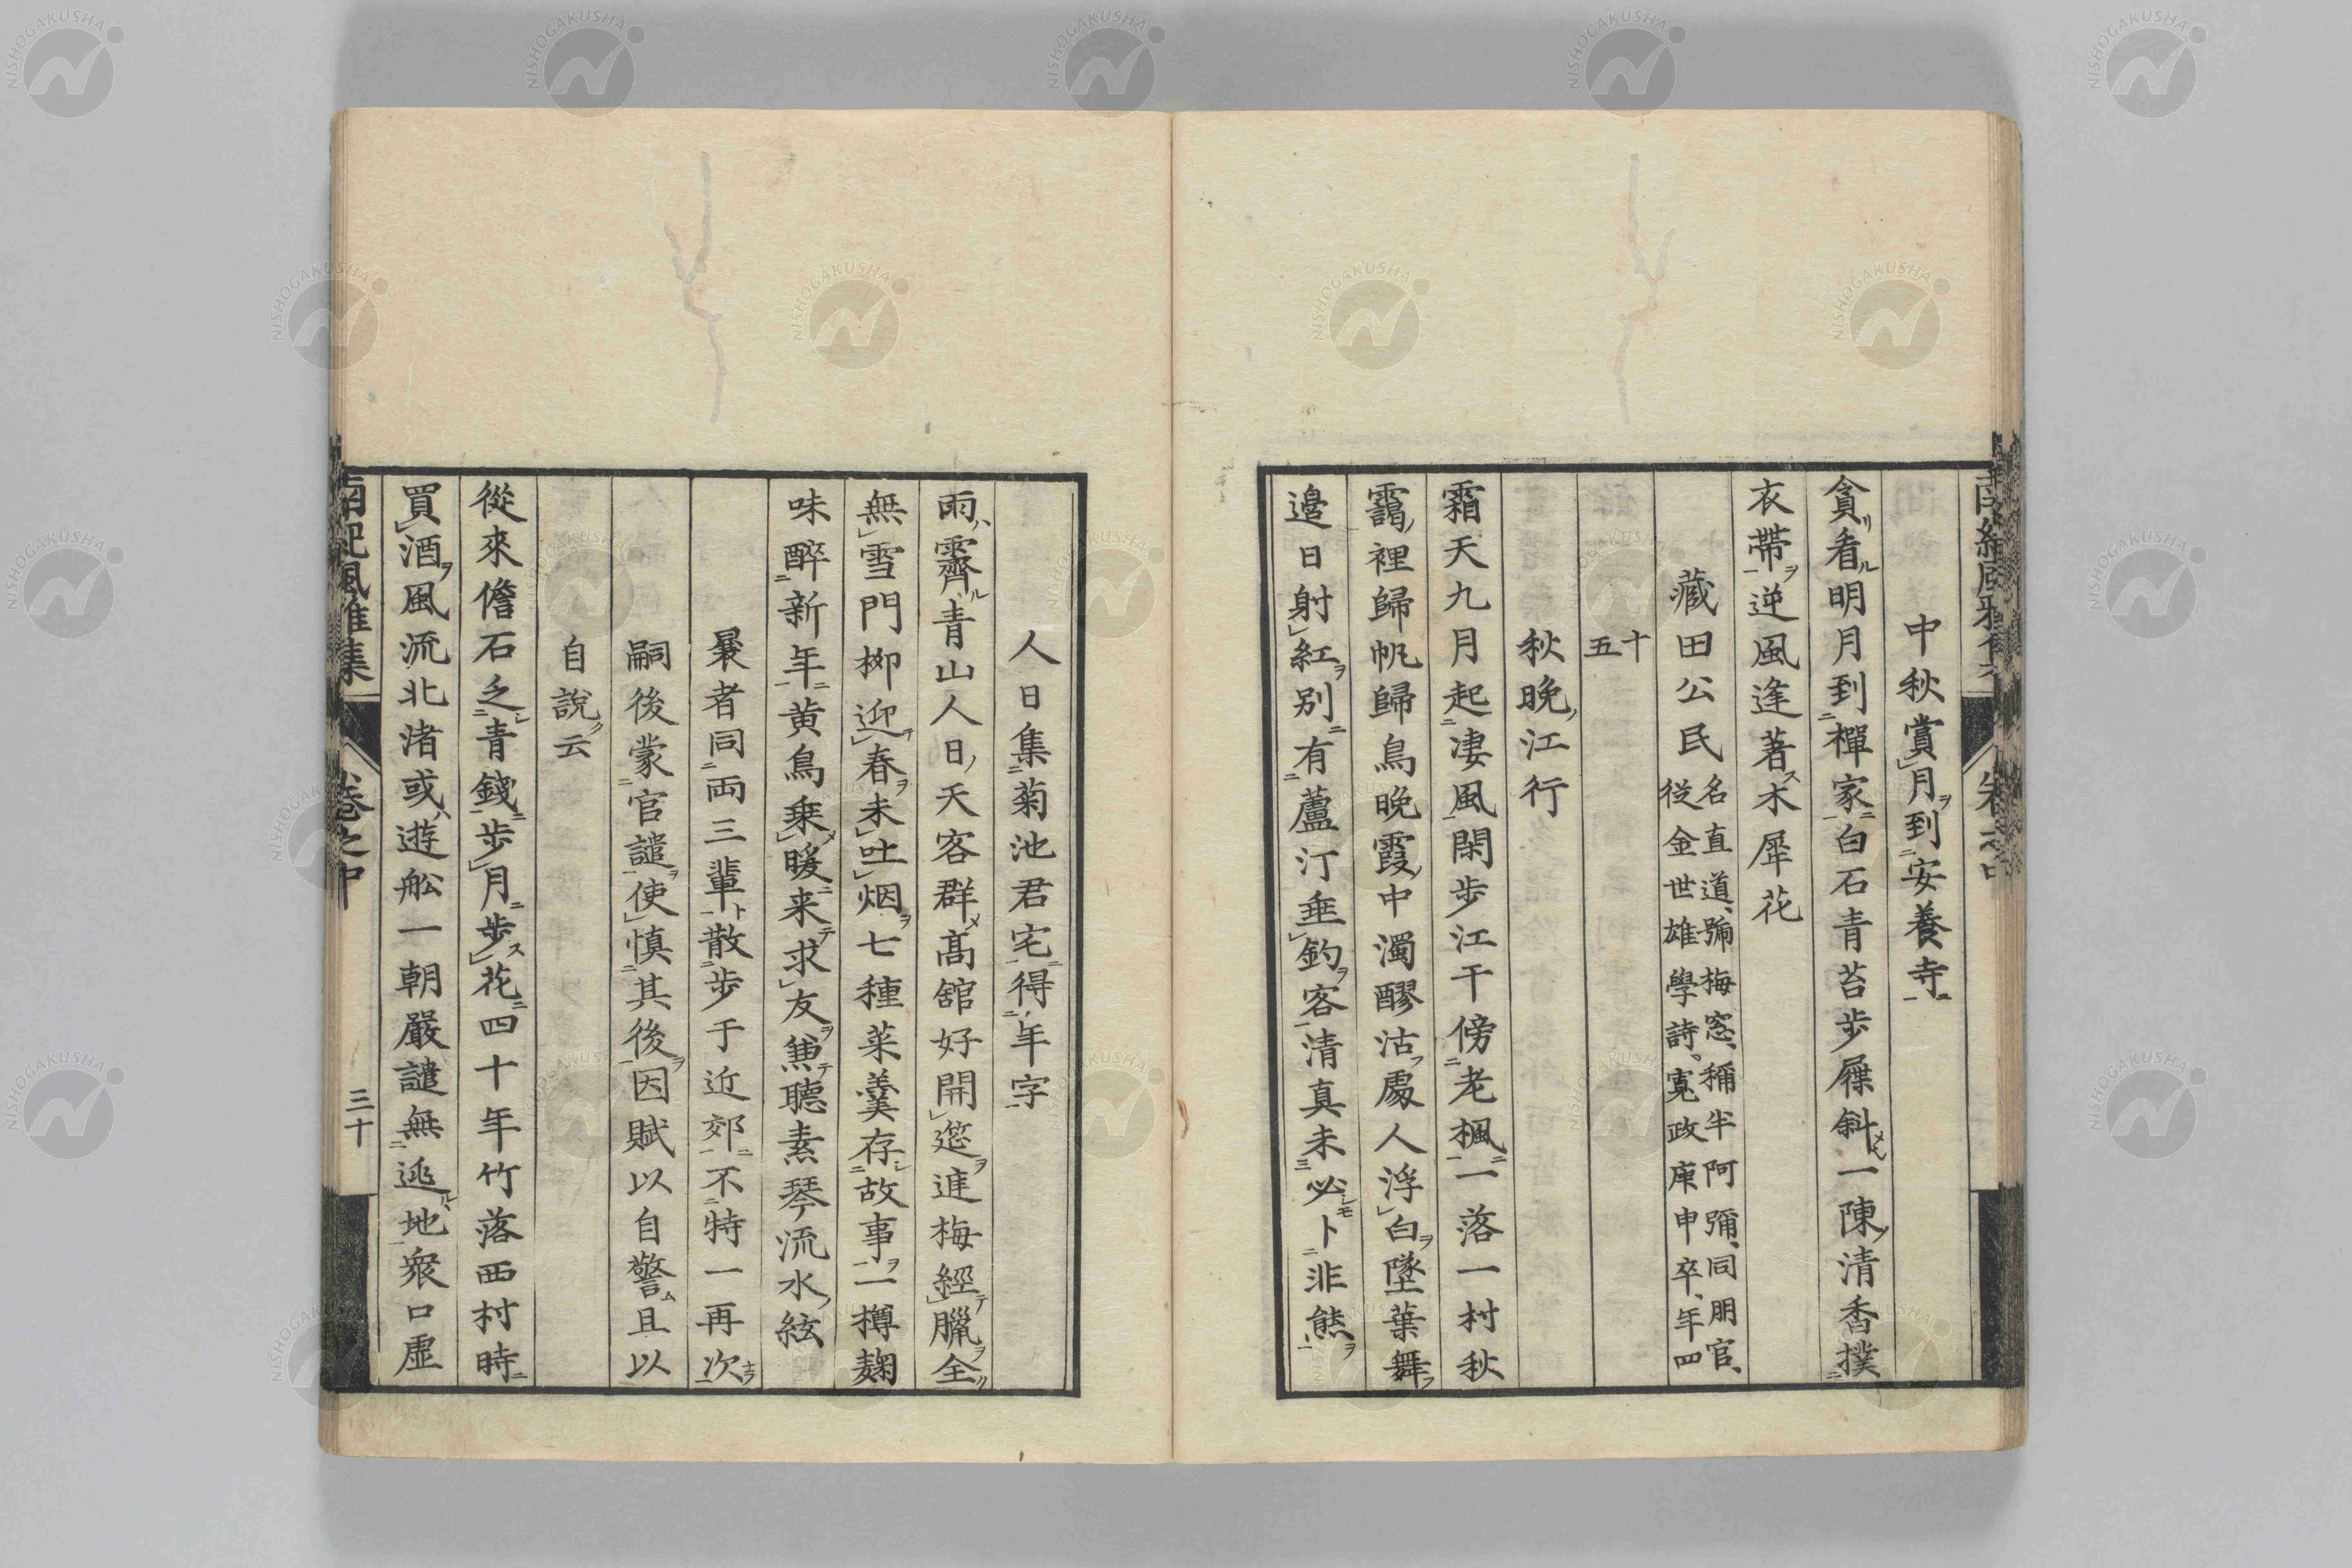 中秋賞月到安養寺
貪看明月到禪家白石青苔歩屧斜一陳清香撲
衣帶逆風逢著木犀花
藏田公民
名直道、號梅窓、稱半阿彌、同朋官、
從金世雄學詩、寛政庚申卒、年四
十
五
秋晩江行
霜天九月起凄風閑歩江干傍老楓一落一村秋
靄裡歸帆歸鳥晩霞中濁醪沽處人浮白墜葉舞
邉日射紅别有蘆汀垂釣客清真未必卜非熊
人日集菊池君宅得年字
雨霽青山人日天客群髙舘好開筵進梅經臘全
無雪門栁迎春未吐烟七種菜羮存故事一樽麹
味醉新年黄鳥乗暖来求友兼聽素琴流水絃
曩者同両三輩散歩于近郊不特一再次
嗣後蒙官譴使慎其後因賦以自警且以
自説云
從來儋石乏青錢歩月歩花四十年竹落西村時
買酒風流北渚或遊舩一朝嚴譴無逃地衆口虚
南紀風雅集
卷之中
三十
NISHOGAKUSHA